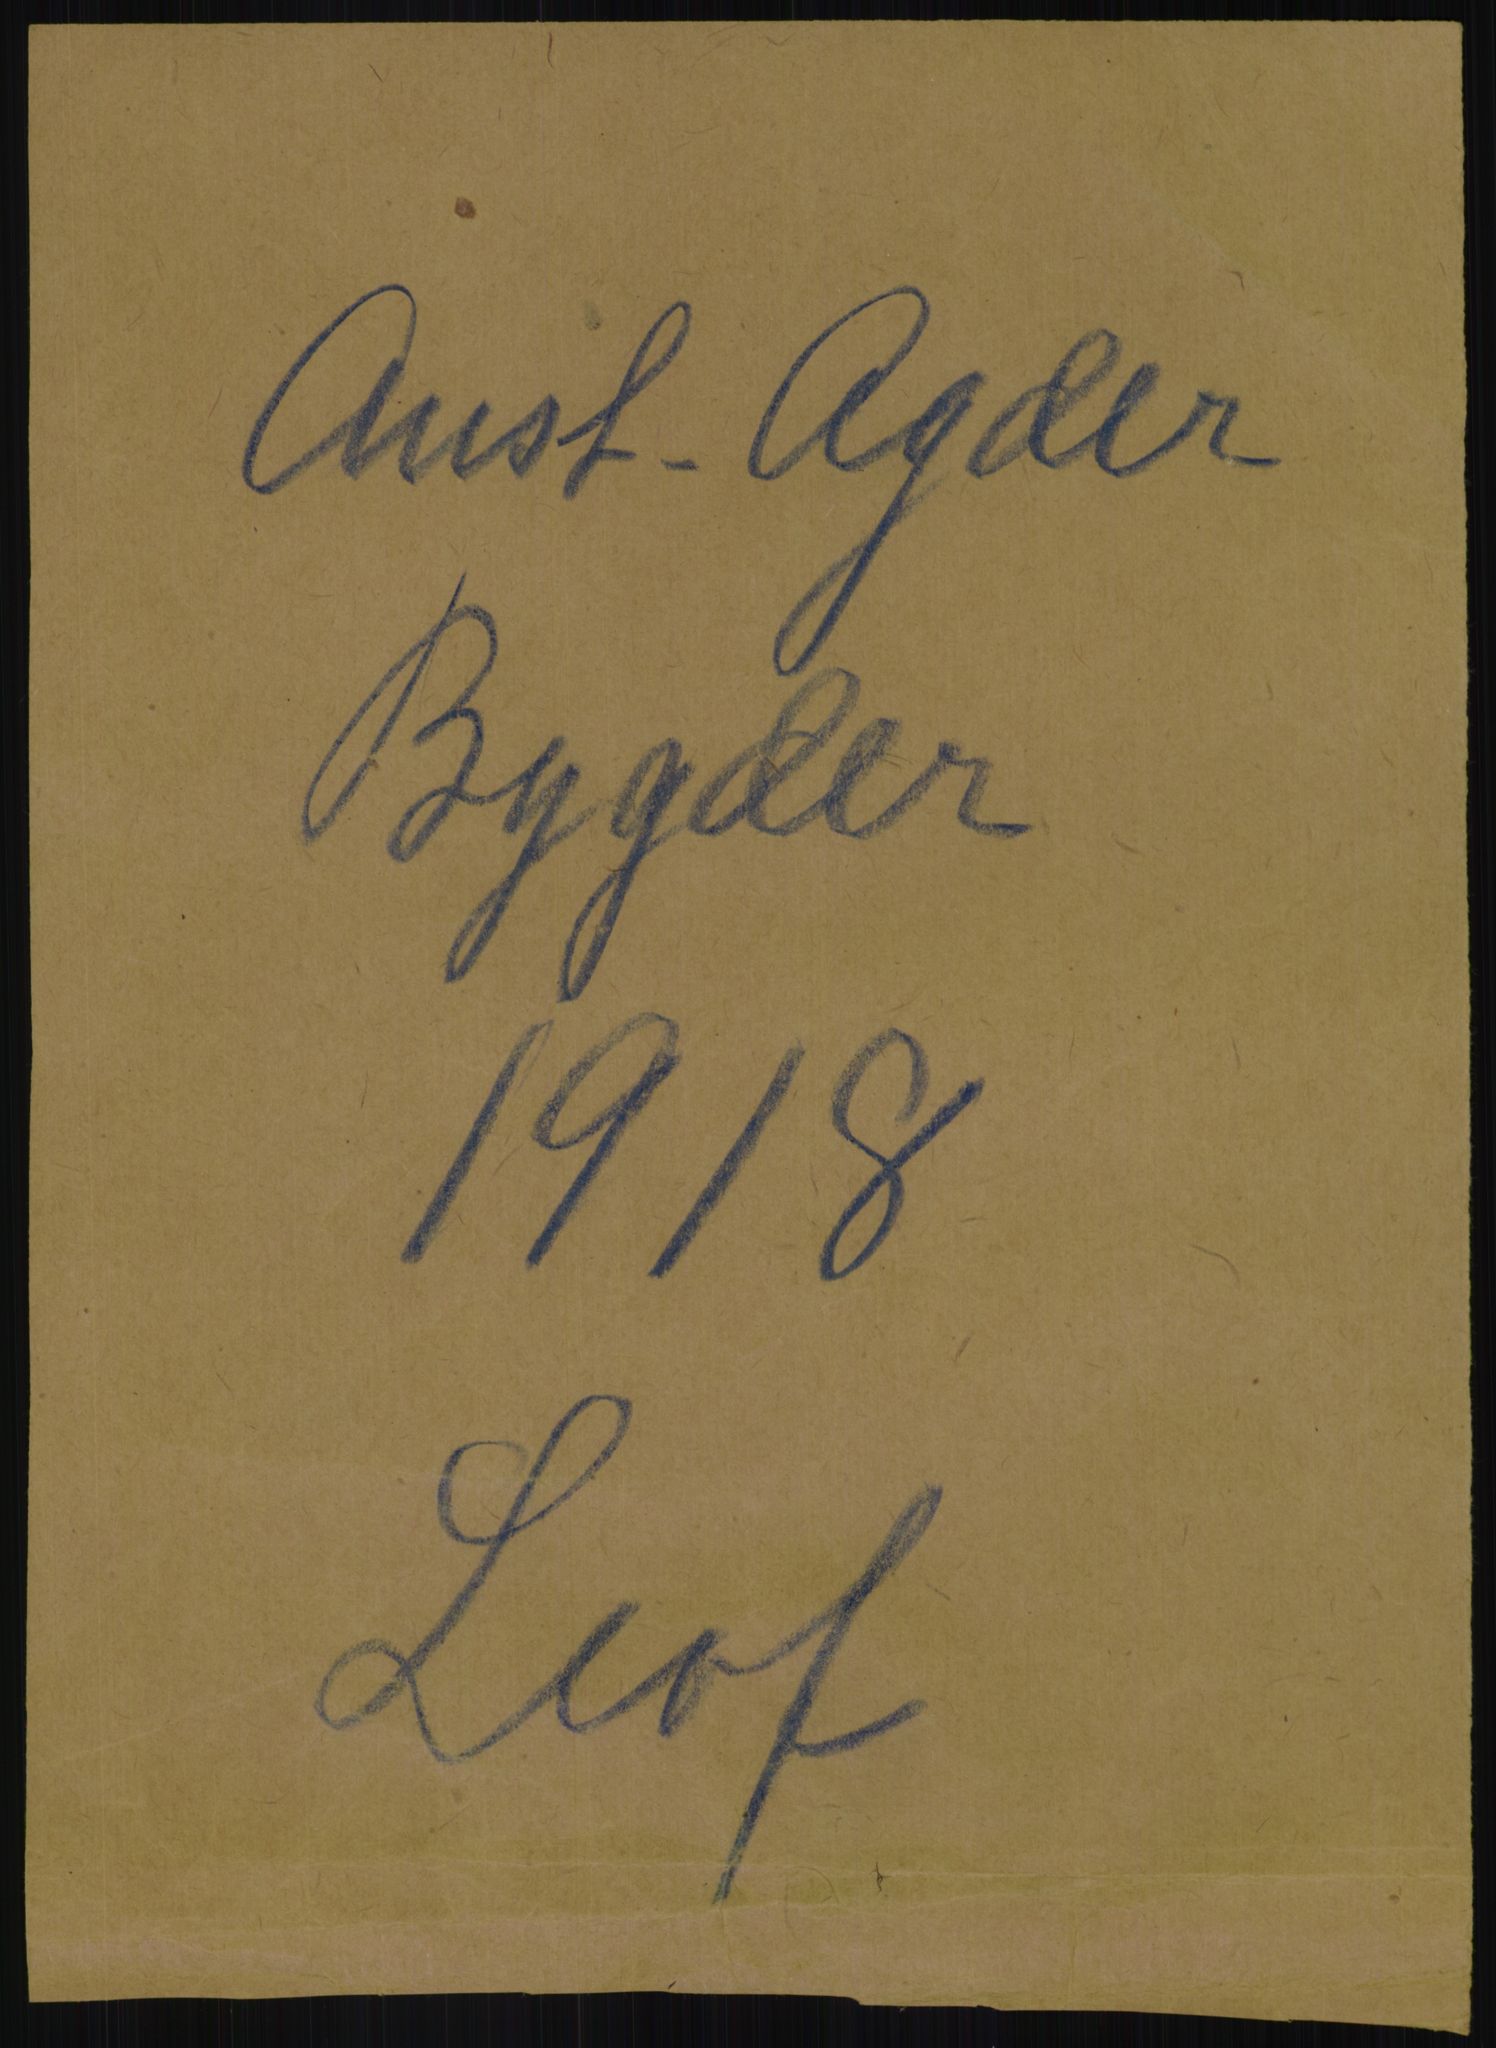 Aust-Agder
Bygder
1918